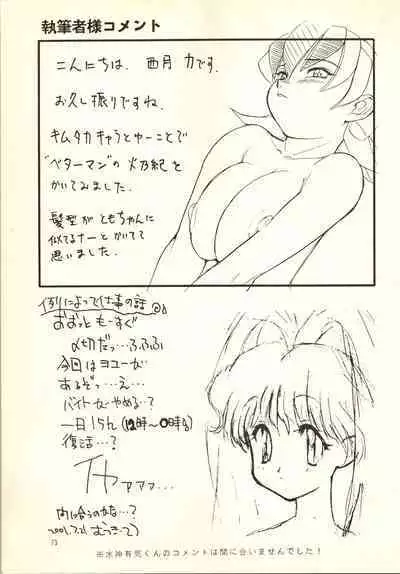 執筆者様コメント
こんにちは、西月 力です。
お久し振りですね。
キムタカキャラとゆーことで
"ベターマン"の火乃紀を
かいてみました。
髪型がともちゃんに
似てるナーとかいてて
思いました。
例によって仕事の話
おおっと もーすぐ
〆切だッ…ふふふ
今回はヨユーが
あるぞッ…え…
バイトがやめる…?
一日15h
復活…?
イヤァァァ…
間に合うのかな…?
2001.7.21
73
※水神有気くんのコメントは間に合いませんでした!